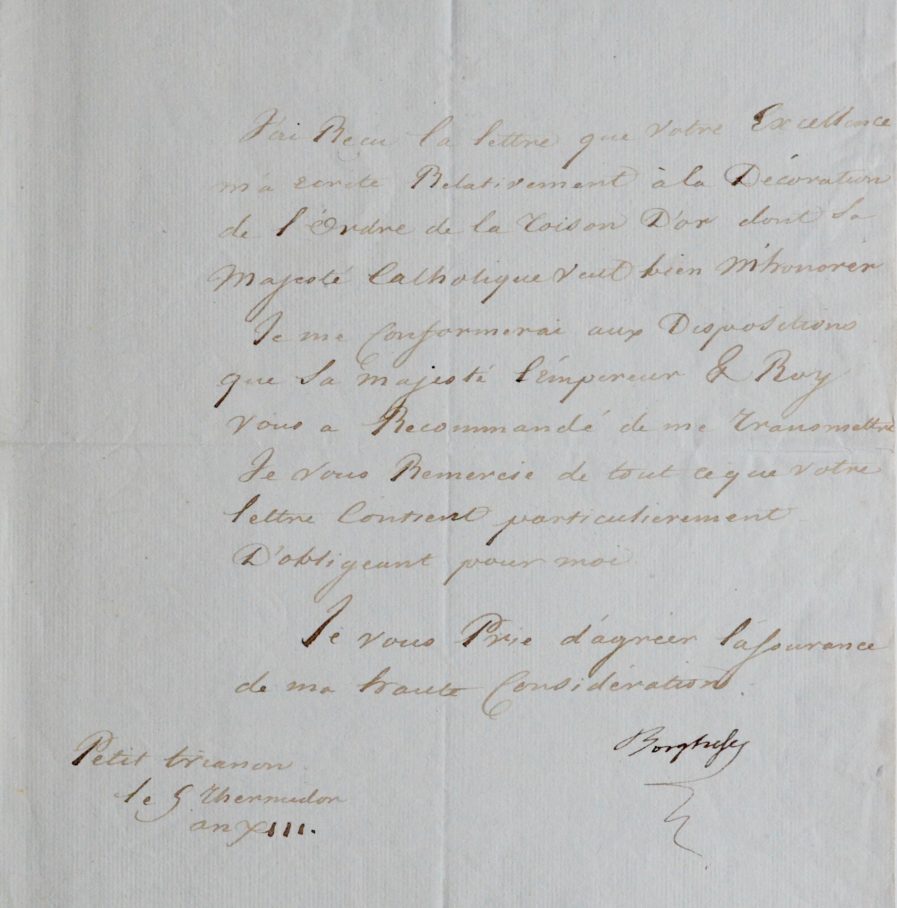 J'ai Reçu la lettre que Votre Excellence
m'a ecrite Relativement à la Décoration
de l'Ordre de la Toison D'or dont Sa
Majesté Catholique veut bien M'honorer
Je me Conformerai aux Dispositions
que Sa majesté l'Empereur & Roy
vous a Recommandé de me Transmettre
Je vous Remercie de tout ce que votre
lettre Contient particulierement
D'obligeant pour moi
Je vous Prie d'agréer l'assurance
de ma haute Considération.
Borghese
Petit trianon
le 5 Thermidor
an XIII.